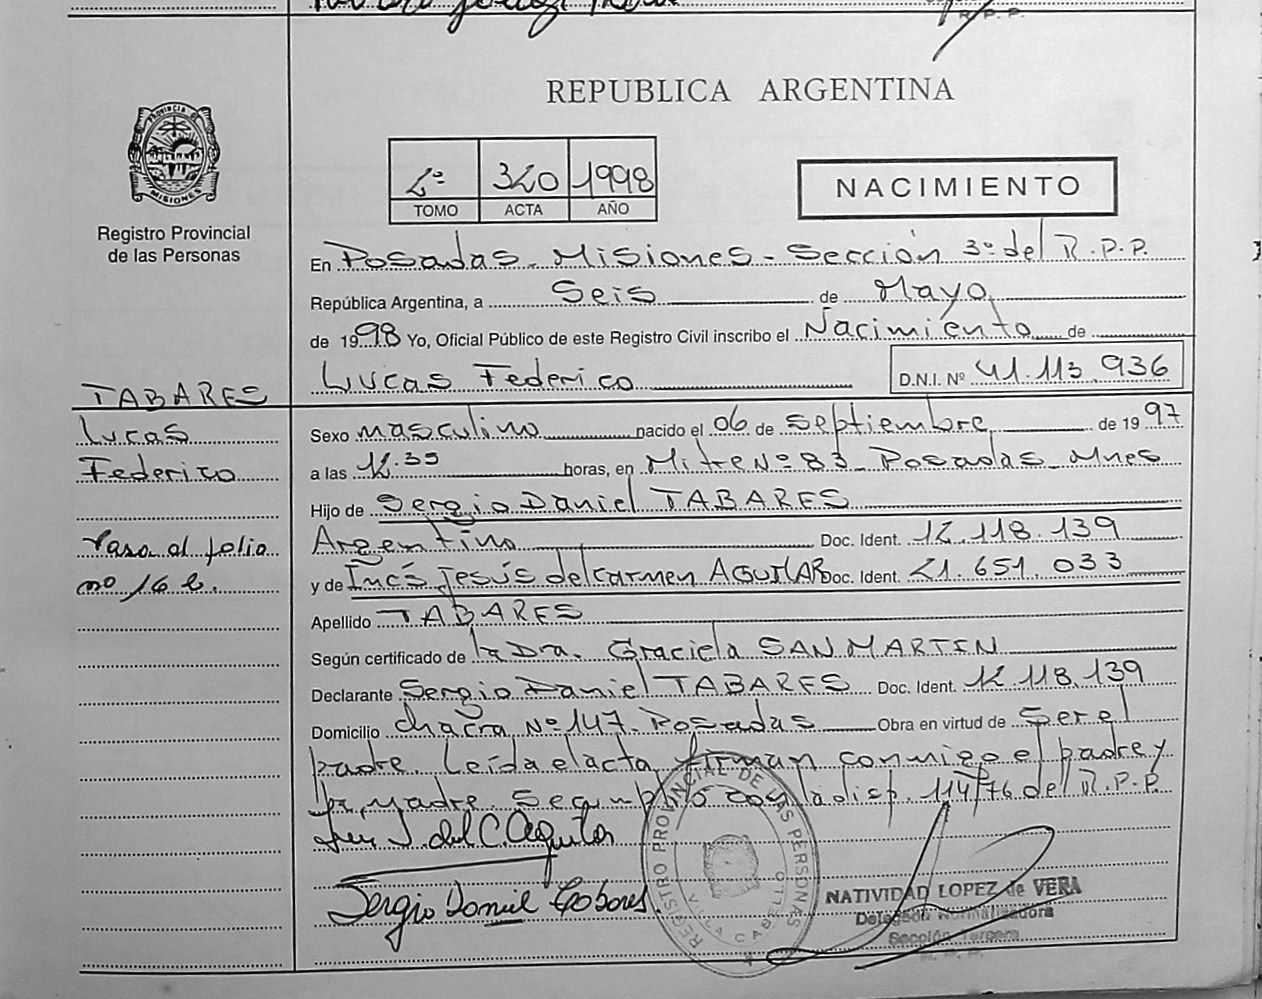 R. P. P.
REPUBLICA ARGENTINA
PROVINCIA DE MISIONES
Registro Provincial
de las Personas
2º 320 1998
TOMO ACTA AÑO
NACIMIENTO
En Posadas - Misiones - Sección 3º del R.P.P.
República Argentina, a Seis de Mayo
de 1998 Yo, Oficial Público de este Registro Civil inscribo el Nacimiento de
Lucas Federico D.N.I. Nº 41.113.936
TABARES
Lucas
Federico
Pasa al folio
nº 16 b.
Sexo masculino nacido el 06 de septiembre de 1997
a las 12.35 horas, en Mitre Nº 83 - Posadas - Mnes
Hijo de Sergio Daniel TABARES
Argentino Doc. Ident. 12.118.139
y de Inés Jesús del Carmen AGUILAR Doc. Ident. 21.651.033
Apellido TABARES
Según certificado de la Dra. Graciela SAN MARTIN
Declarante Sergio Daniel TABARES Doc. Ident. 12 118.139
Domicilio chacra Nº 147 - Posadas Obra en virtud de Ser el
padre. Leída el acta, firman conmigo el padre y
la madre. Se cumplió con la disp. 114/76 del R.P.P.
J. del C. Aguilar
Sergio Daniel Tabares
REGISTRO PROVINCIAL DE LAS PERSONAS
VILLA CABELLO
NATIVIDAD LOPEZ de VERA
Delegada Normalizadora
Sección Tercera
R. P. P.